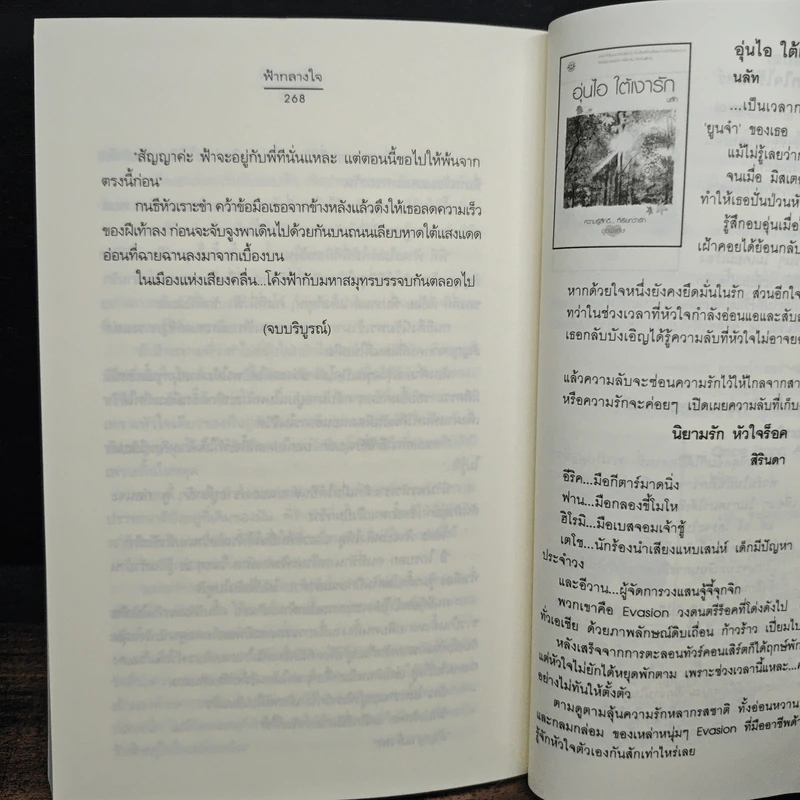 ฟ้ากลางใจ
268
"สัญญาค่ะ ฟ้าจะอยู่กับพี่ทีนั่นแหละ แต่ตอนนี้ขอไปให้พ้นจาก
ตรงนี้ก่อน"
กนธีหัวเราะขำ คว้าข้อมือเธอจากข้างหลังแล้วดึงให้เธอลดความเร็ว
ของฝีเท้าลง ก่อนจะจับจูงพาเดินไปด้วยกันบนถนนเลียบหาดใต้แสงแดด
อ่อนที่ฉายฉานลงมาจากเบื้องบน
ในเมืองแห่งเสียงคลื่น...โค้งฟ้ากับมหาสมุทรบรรจบกันตลอดไป
(จบบริบูรณ์)
อุ่นไอ ใต้เงารัก
นลัท
อุ่นไอ ใต้
นลัท
...เป็นเวลาก
'ยูนจำ' ของเธอ
แม้ไม่รู้เลยว่า
จนเมื่อ มิสเต
ทำให้เธอปั่นป่วนหั
รู้สึกอบอุ่นเมื่อ
เฝ้าคอยได้ย้อนกลับ
หากด้วยใจหนึ่งยังคงยึดมั่นในรัก ส่วนอีกใจ
ทว่าในช่วงเวลาที่หัวใจกำลังอ่อนแอและสับส
เธอกลับบังเอิญได้รู้ความลับที่หัวใจไม่อาจยอ
แล้วความลับจะซ่อนความรักไว้ให้ไกลจากสา
หรือความรักจะค่อยๆ เปิดเผยความลับที่เก็บ
นิยามรัก หัวใจร็อค
สิรินดา
อีริค...มือกีตาร์มาดนิ่ง
ฟาน...มือกลองขี้โมโห
ฮิโรมิ...มือเบสจอมเจ้าชู้
เตโช...นักร้องนำเสียงแหบเสน่ห์ เด็กมีปัญหา
ประจำวง
และอีวาน...ผู้จัดการวงแสนจู้จี้จุกจิก
พวกเขาคือ Evasion วงดนตรีร็อคที่โด่งดังไป
ทั่วเอเชีย ด้วยภาพลักษณ์ดิบเถื่อน ก้าวร้าว เปี่ยมไป
หลังเสร็จจากการตะลอนทัวร์คอนเสิร์ตก็ได้ฤกษ์พัก
แต่หัวใจไม่ยักได้หยุดพักตาม เพราะช่วงเวลานี้แหละ...
อย่างไม่ทันให้ตั้งตัว
ตามดูตามลุ้นความรักหลากรสชาติ ทั้งอ่อนหวาน
และกลมกล่อม ของเหล่าหนุ่มๆ Evasion ที่มีออาชีพด้
รู้จักหัวใจตัวเองกันสักเท่าไหร่เลย